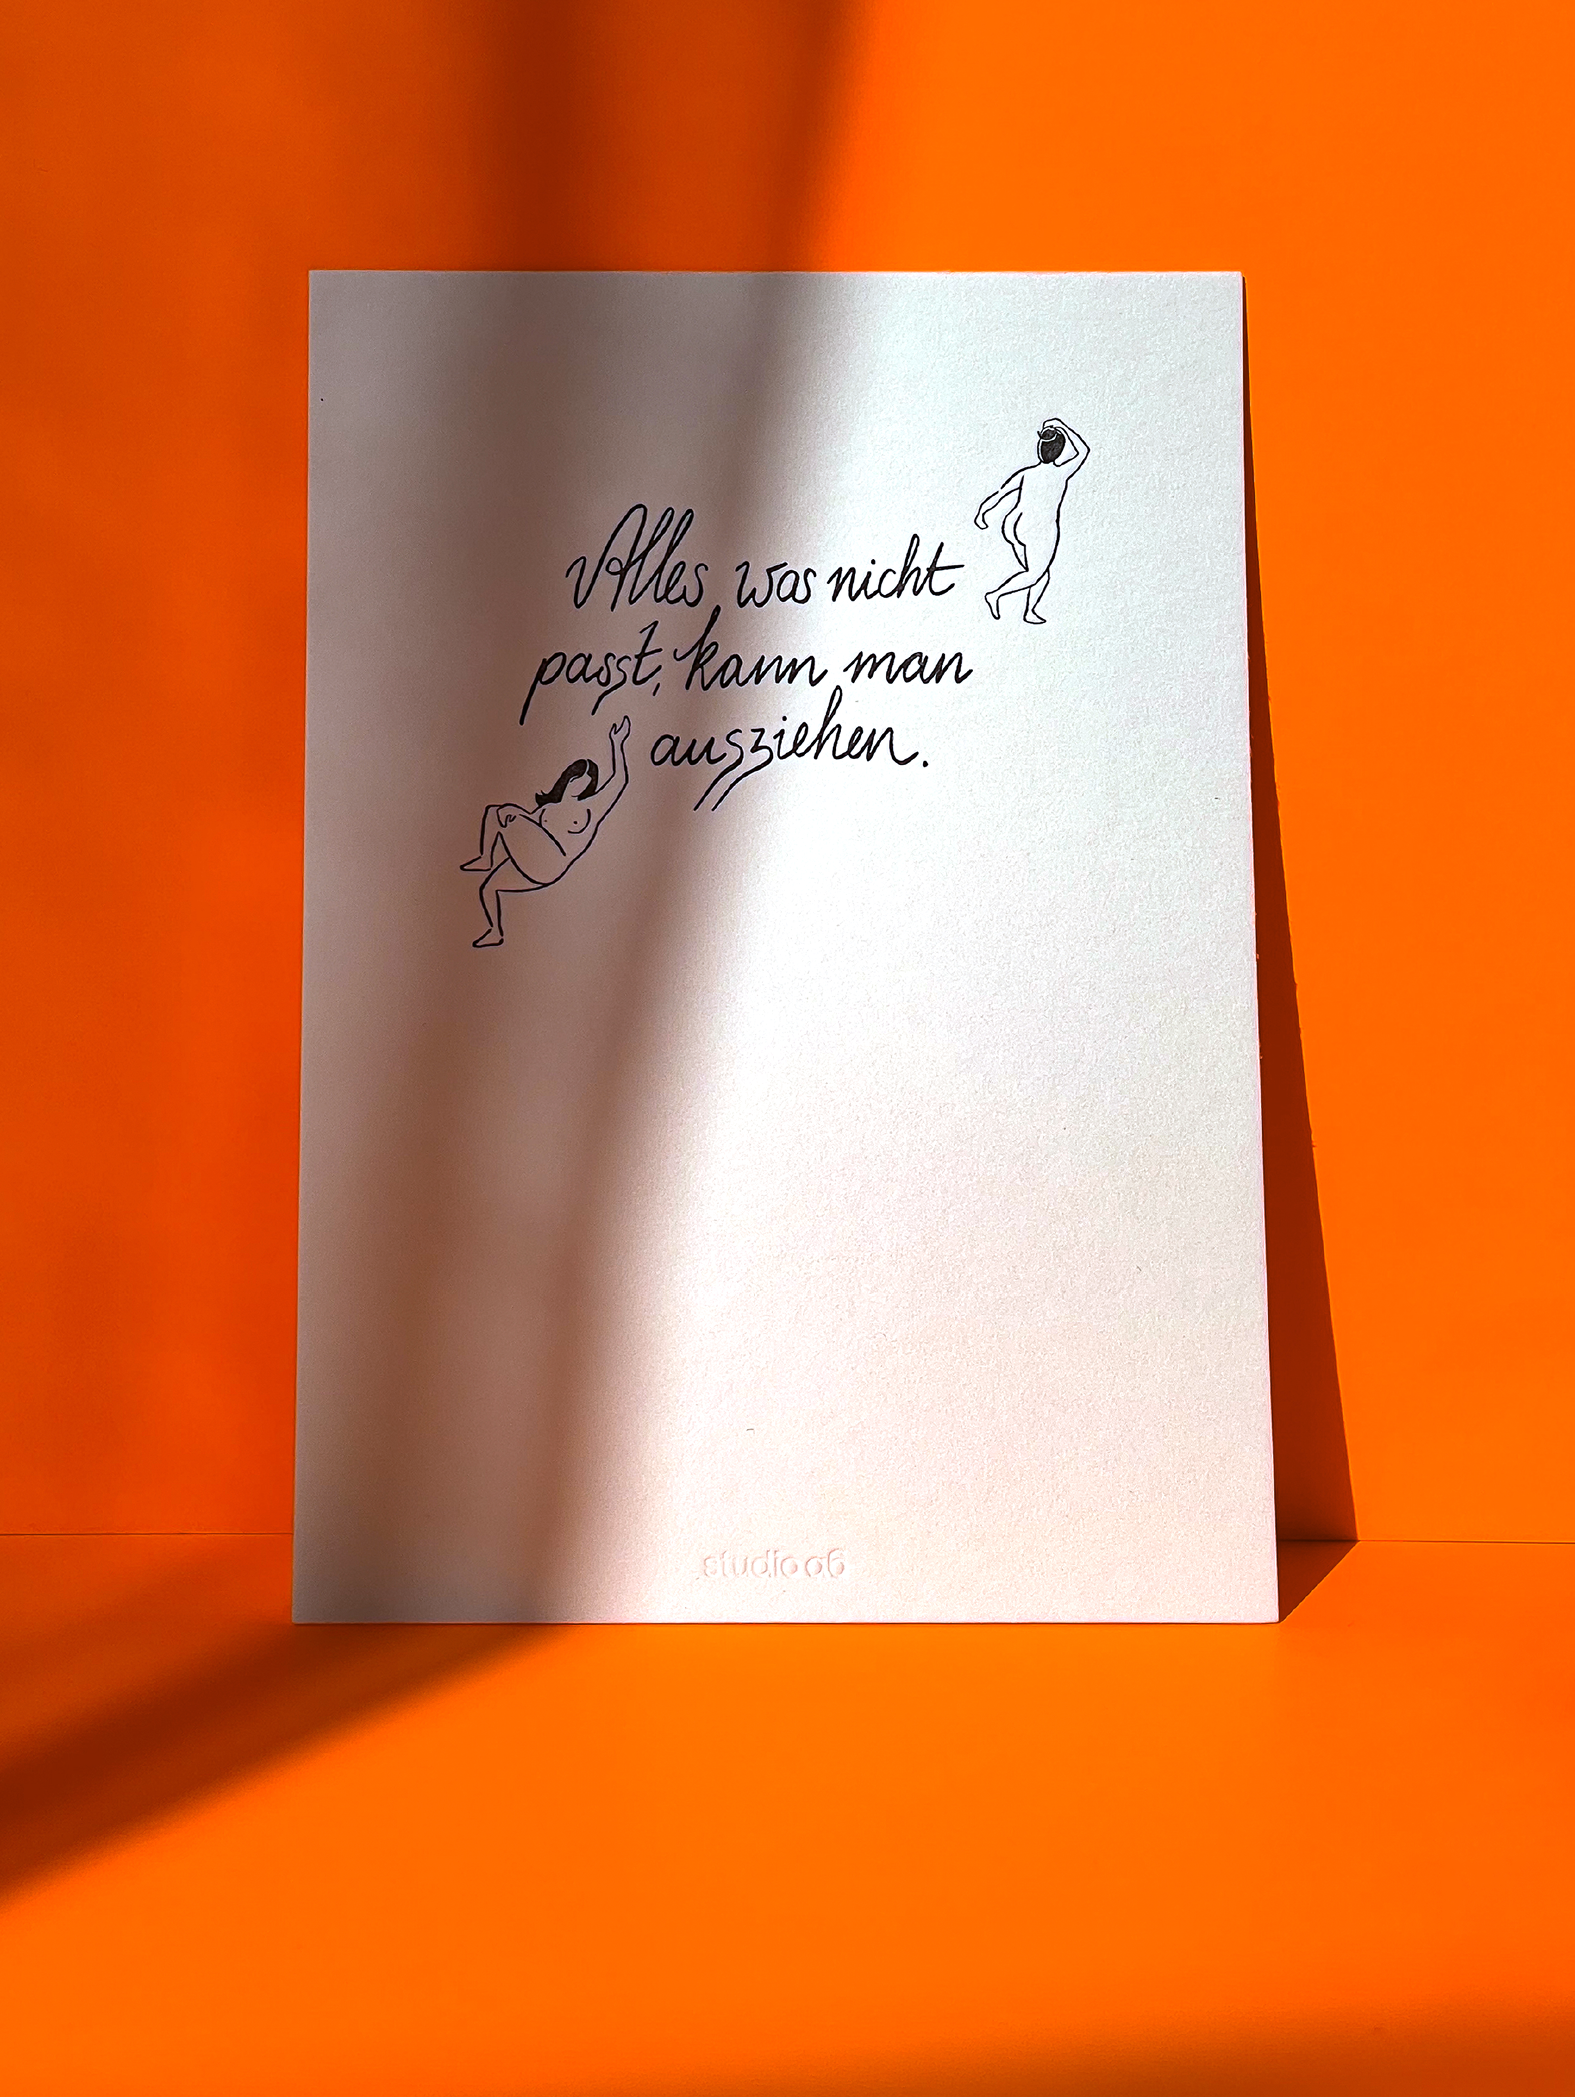 Alles, was nicht
passt, kann man
ausziehen.
studio ag